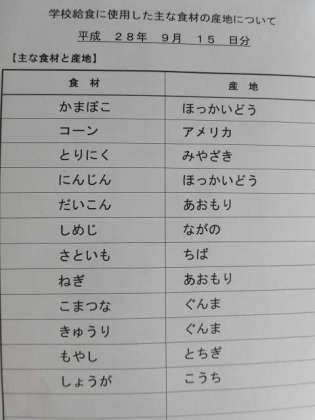 学校給食に使用した主な食材の産地について
平成 28年 9月 15 日分
【主な食材と産地】
食 材 産 地
かまぼこ ほっかいどう
コーン アメリカ
とりにく みやざき
にんじん ほっかいどう
だいこん あおもり
しめじ ながの
さといも ちば
ねぎ あおもり
こまつな ぐんま
きゅうり ぐんま
もやし とちぎ
しょうが こうち